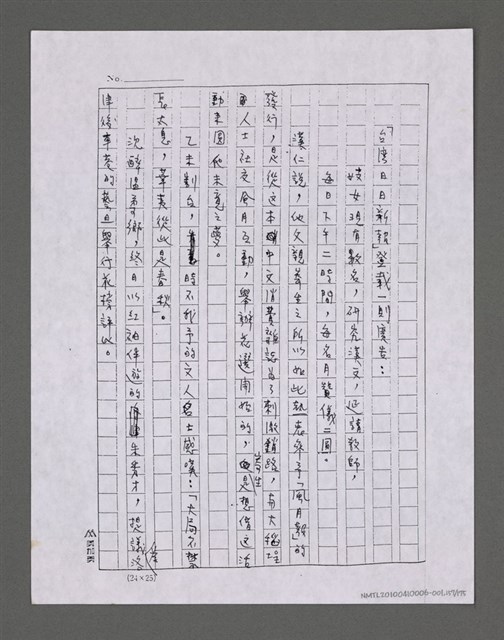 No.
「台灣日日新報」登載一則廣告：
妓女現有數名，研究漢文，延請教師，
每日下午二時間，每名月贄儀二圓。
漢仁說，他父親養生之所以如此熱衷參予「風月報」的
發行，是從這本中文消費雜誌為了刺激銷路，與大稻埕
人士社交風月互動，舉辦花選開始的，養生是想借這活
動來圓他未竟之夢。
乙未割台，時不我予的文人名士感嘆：「大局不堪
長太息，華夷從此是春秋」。
沈醉溫柔鄉，終日以紅袖伴遊的朱秀才，想議洛
津後車巷的藝旦舉行花榜評比。
(24×25)
NMTL20100410006-001.157/175